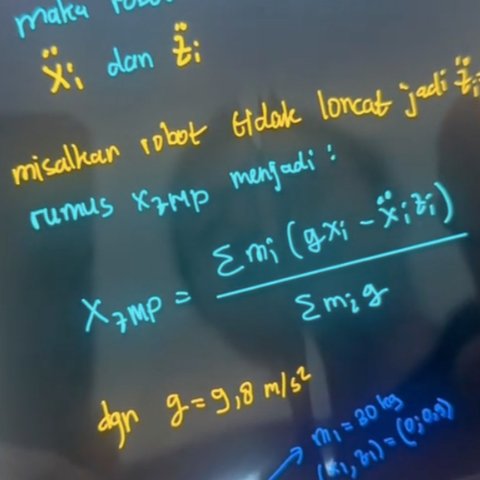 maka robo
ẍi dan z̈i
misalkan robot tidak loncat jadi z̈i
rumus XZMP menjadi :
XZMP = Σmi (gxi - ẍizi) / Σmig
dgn g = 9,8 m/s²
m1 = 20 kg
(x1, z1) = (0; 0,5)